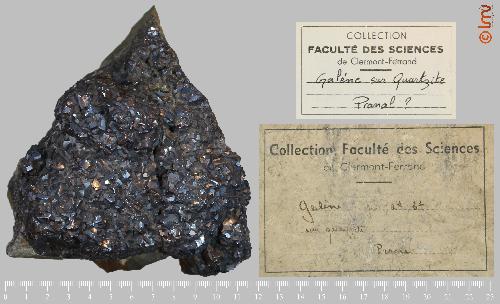 COLLECTION
FACULTÉ DES SCIENCES
de Clermont-Ferrand
Galène sur Quartzite
Pranal ?
Collection Faculté des Sciences
de Clermont-Ferrand
galène
© lmv
0 1 2 3 4 5 6 7 8 9 10 11 12 13 14 15 16 17 18 19 20 21 22 23